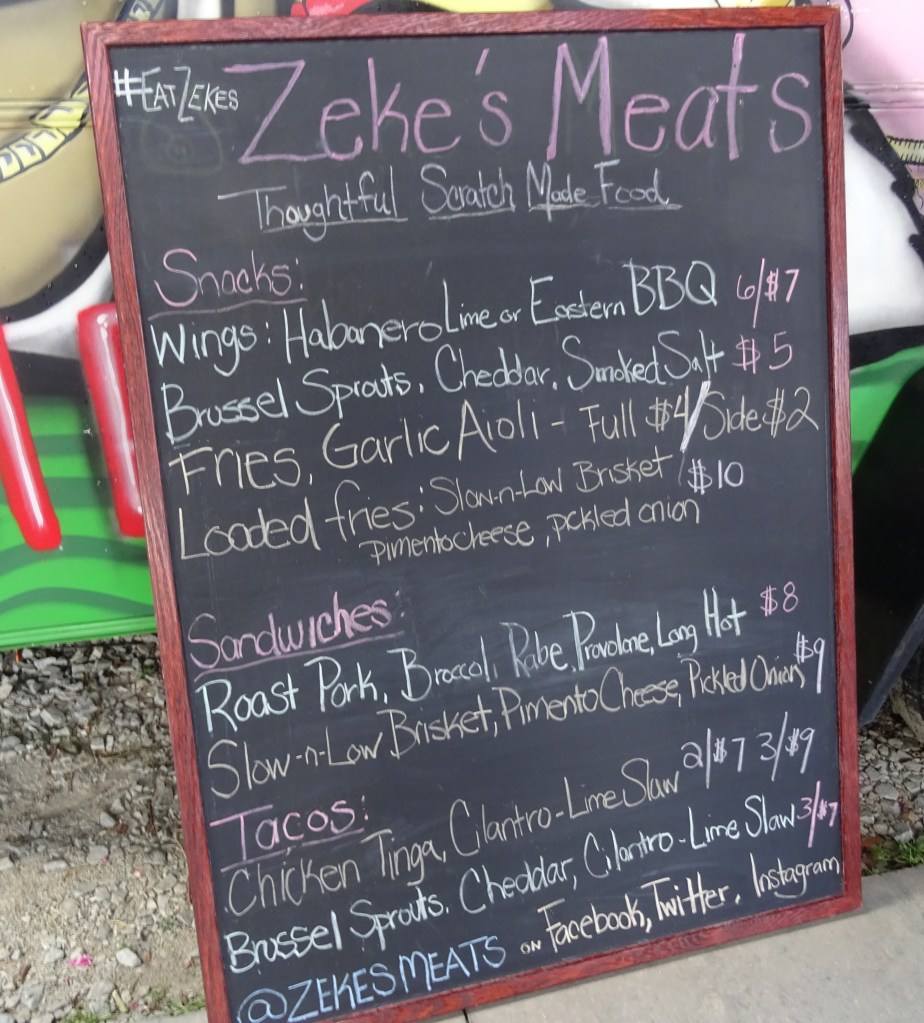 #EATZEKES
Zeke's Meats
Thoughtful Scratch Made Food
Snacks:
Wings: Habanero Lime or Eastern BBQ 6/$7
Brussel Sprouts, Cheddar, Smoked Salt $5
Fries, Garlic Aioli - Full $4/Side $2
Loaded fries: Slow-n-Low Brisket $10
pimento cheese, pickled onion
Sandwiches:
Roast Pork, Broccoli Rabe, Provolone, Long Hot $8
Slow-n-Low Brisket, Pimento Cheese, Pickled Onion $9
Tacos:
Chicken Tinga, Cilantro-Lime Slaw 2/$7 3/$9
Brussel Sprouts, Cheddar, Cilantro-Lime Slaw 3/$7
@ZEKESMEATS ON Facebook, Twitter, Instagram